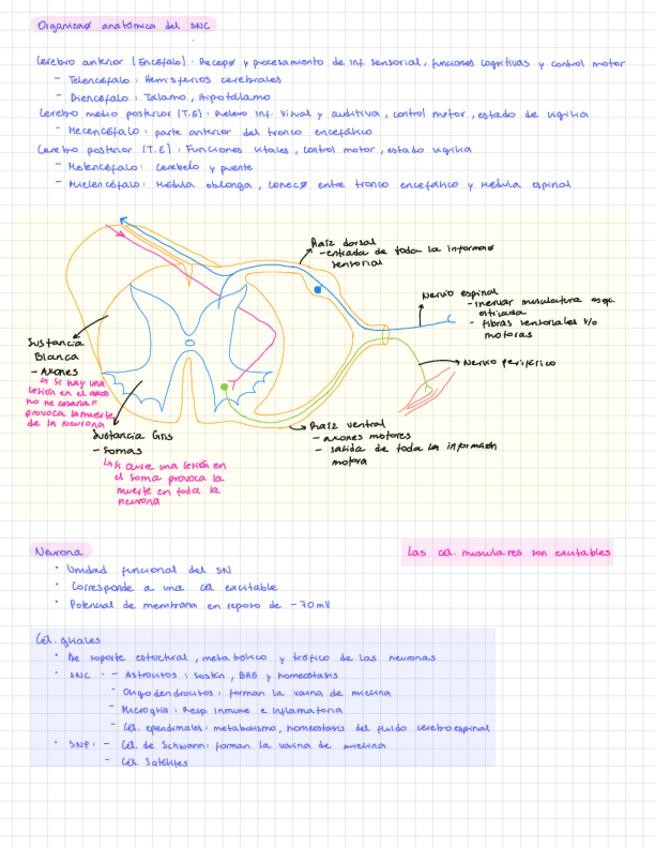 Organizaø anatómica del SNC
Cerebro anterior (Encéfalo): Recepø y procesamiento de inf. sensorial, funciones cognitivas y control motor
- Telencéfalo: Hemisferios cerebrales
- Diencéfalo: Tálamo, Hipotálamo
Cerebro medio posterior (T.E): Relevo inf. visual y auditiva, control motor, estado de vigilia
- Mecencéfalo: parte anterior del tronco encefálico
Cerebro posterior (T.E): Funciones vitales, control motor, estado vigilia
- Metencéfalo: Cerebelo y puente
- Mielencéfalo: Médula oblonga, conecø entre tronco encefálico y Médula espinal
Raíz dorsal
- entrada de toda la informaø
sensorial
Nervio espinal
- inervar musculatura esq.
estriada
- fibras sensoriales y/o
motoras
Nervio periférico
Sustancia
Blanca
- Axones
↳ si hay una
lesión en el axón
no necesaria
provoca la muerte
de la neurona
Sustancia Gris
- Somas
↳ si ocurre una lesión en
el soma provoca la
muerte en toda la
neurona
Raíz ventral
- axones motores
- salida de toda la información
motora
Neurona
• Unidad funcional del SN
• Corresponde a una cél excitable
• Potencial de membrana en reposo de -70mV
Las cél. musculares son excitables
Cél. gliales
• De soporte estructural, metabólico y trófico de las neuronas
• SNC: - Astrocitos: sostén, BHE y homeostasis
- Oligodendrocitos: forman la vaina de mielina
- Microglia: Resp. Inmune e Inflamatoria
- Cél. ependimales: metabolismo, homeostasis del fluido cerebroespinal
• SNP: - Cél. de Schwann: forman la vaina de mielina
- Cél. Satélites